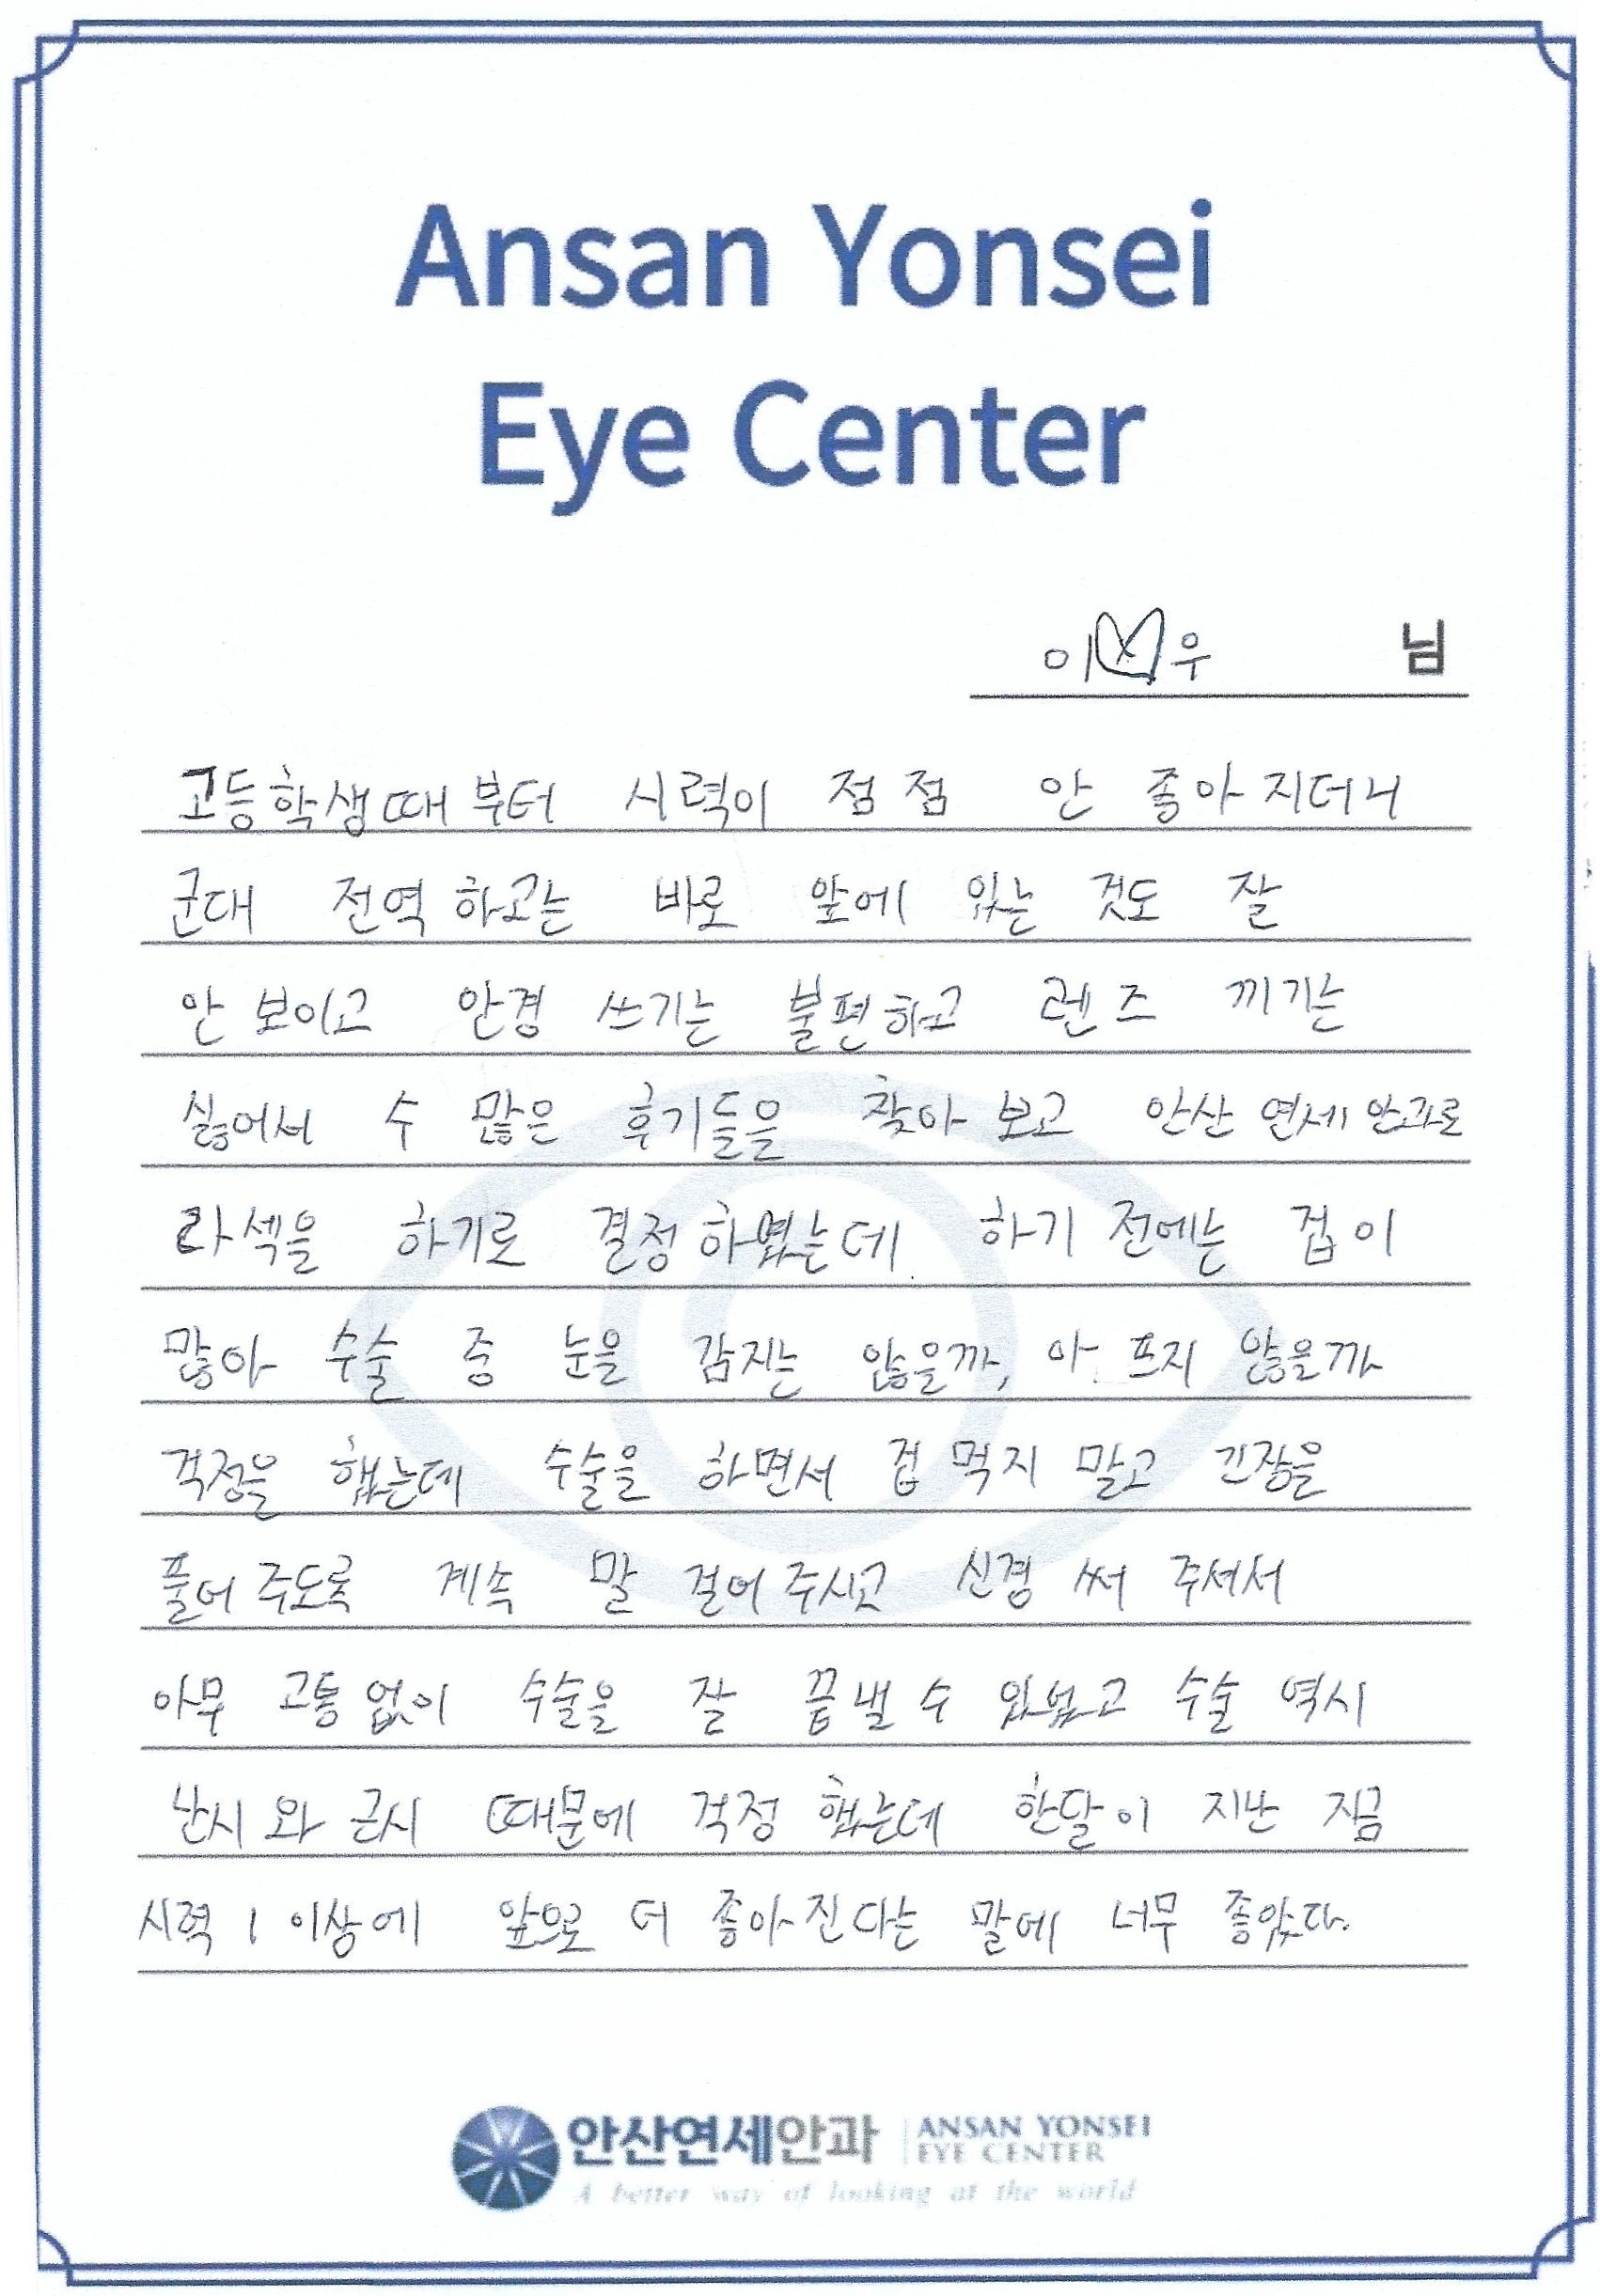 Ansan Yonsei
Eye Center
이♡우 님
고등학생때 부터 시력이 점점 안 좋아지더니
군대 전역하고는 바로 앞에 있는 것도 잘
안 보이고 안경 쓰기는 불편하고 렌즈 끼기는
싫어서 수 많은 후기들을 찾아 보고 안산 연세 안과로
라섹을 하기로 결정하였는데 하기 전에는 겁이
많아 수술 중 눈을 감지는 않을까, 아프지 않을까
걱정을 했는데 수술을 하면서 겁 먹지 말고 긴장을
풀어 주도록 계속 말 걸어 주시고 신경 써 주셔서
아무 고통 없이 수술을 잘 끝낼 수 있었고 수술 역시
난시와 근시 때문에 걱정 했는데 한달이 지난 지금
시력 1 이상에 앞으로 더 좋아진다는 말에 너무 좋았다.
안산연세안과 ANSAN YONSEI
EYE CENTER
A better way of looking at the world